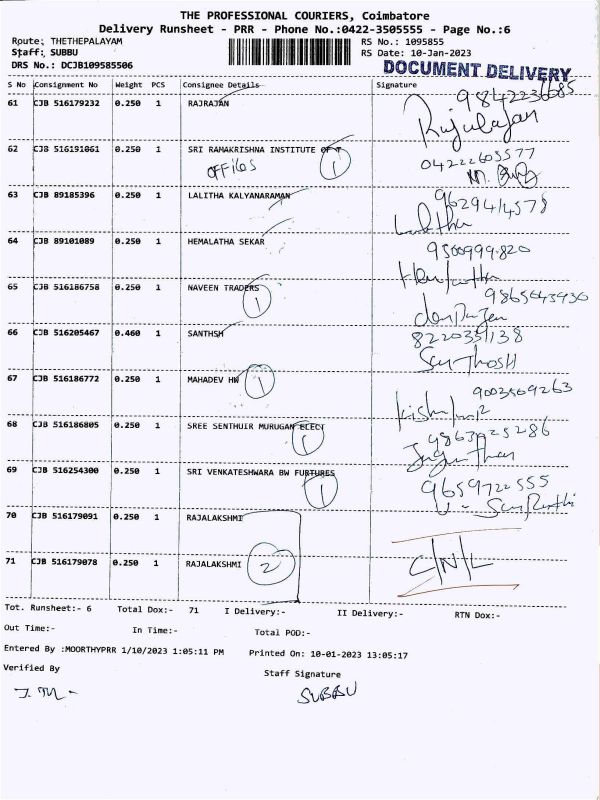 THE PROFESSIONAL COURIERS, Coimbatore
Delivery Runsheet - PRR - Phone No.:0422-3505555 - Page No.:6
Route: THETHEPALAYAM RS No.: 1095855
Staff: SUBBU RS Date: 10-Jan-2023
DRS No.: DCJB109585506 DOCUMENT DELIVERY
S No Consignment No Weight PCS Consignee Details Signature
61 CJB 516179232 0.250 1 RAJRAJAN 9842236685
Rajulajan
62 CJB 516191061 0.250 1 SRI RAMAKRISHNA INSTITUTE OF T 04222605577
OFFiles 1
63 CJB 89185396 0.250 1 LALITHA KALYANARAMAN 9629414578
Lalitha
64 CJB 89101089 0.250 1 HEMALATHA SEKAR 9500999820
65 CJB 516186758 0.250 1 NAVEEN TRADERS 1
66 CJB 516205467 0.460 1 SANTHSH 8220351138
Santhosh
67 CJB 516186772 0.250 1 MAHADEV HW 1 9003569263
68 CJB 516186805 0.250 1 SREE SENTHUIR MURUGAN ELECT 1 9863025286
69 CJB 516254300 0.250 1 SRI VENKATESHWARA BW FURTURES 1 9659722555
70 CJB 516179091 0.250 1 RAJALAKSHMI
71 CJB 516179078 0.250 1 RAJALAKSHMI 2 C/N/L
Tot. Runsheet:- 6 Total Dox:- 71 I Delivery:- II Delivery:- RTN Dox:-
Out Time:- In Time:- Total POD:-
Entered By :MOORTHYPRR 1/10/2023 1:05:11 PM Printed On: 10-01-2023 13:05:17
Verified By Staff Signature
SUBBU